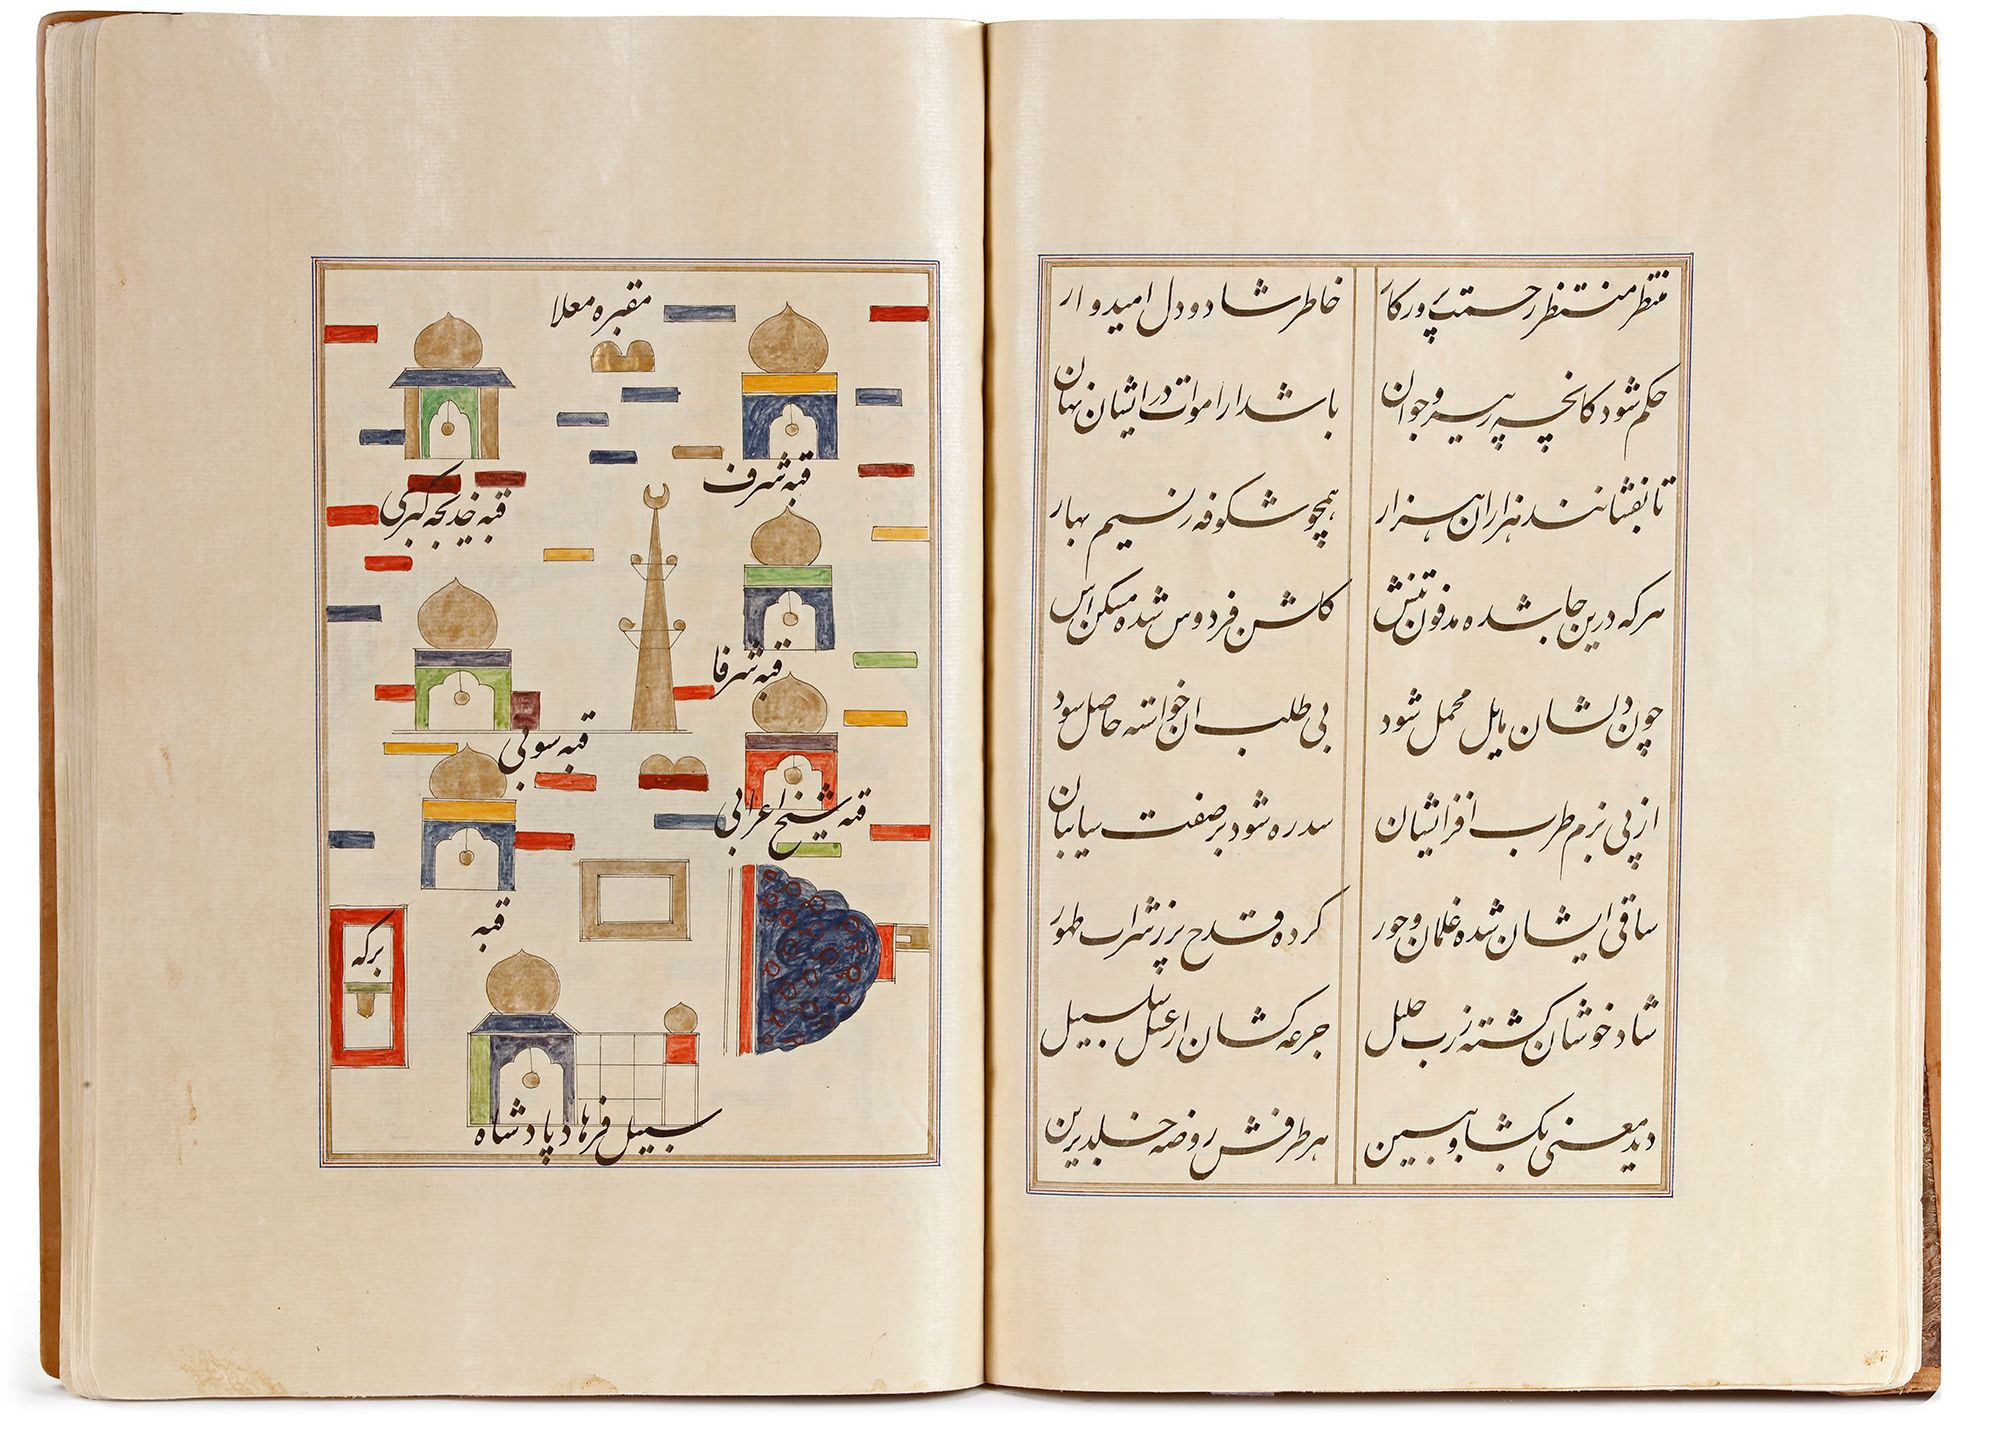 منتظر منتظر رحمت پرورکار
خاطر شاد و دل امیدوار
حکم شود کانچه ز پیر و جوان
باشد از اموات در ایشان نهان
تا بفشانند هزاران هزار
همچو شکوفه ز نسیم بهار
هر که درین جا شده مدفون تنش
گلشن فردوس شده مسکنش
چون دلشان مایل محمل شود
بی طلب ان خواسته حاصل شود
از پی بزم طرب افزایشان
سدره شود بر صفت سایبان
ساقی ایشان شده غلمان و حور
کرده قدح پر ز شراب طهور
شاد و خوشان کشته ز رب جلیل
جرعه کشان از عسل سلسبیل
دیده معنی بکشا و ببین
هر طرفش روضه خلد برین
مقبره معلا
قبه شرف
قبه خدیجه کبری
قبه شرفا
قبه سوبی
قبه شیخ اعرابی
قبه
برکه
سبیل فرهاد پادشاه